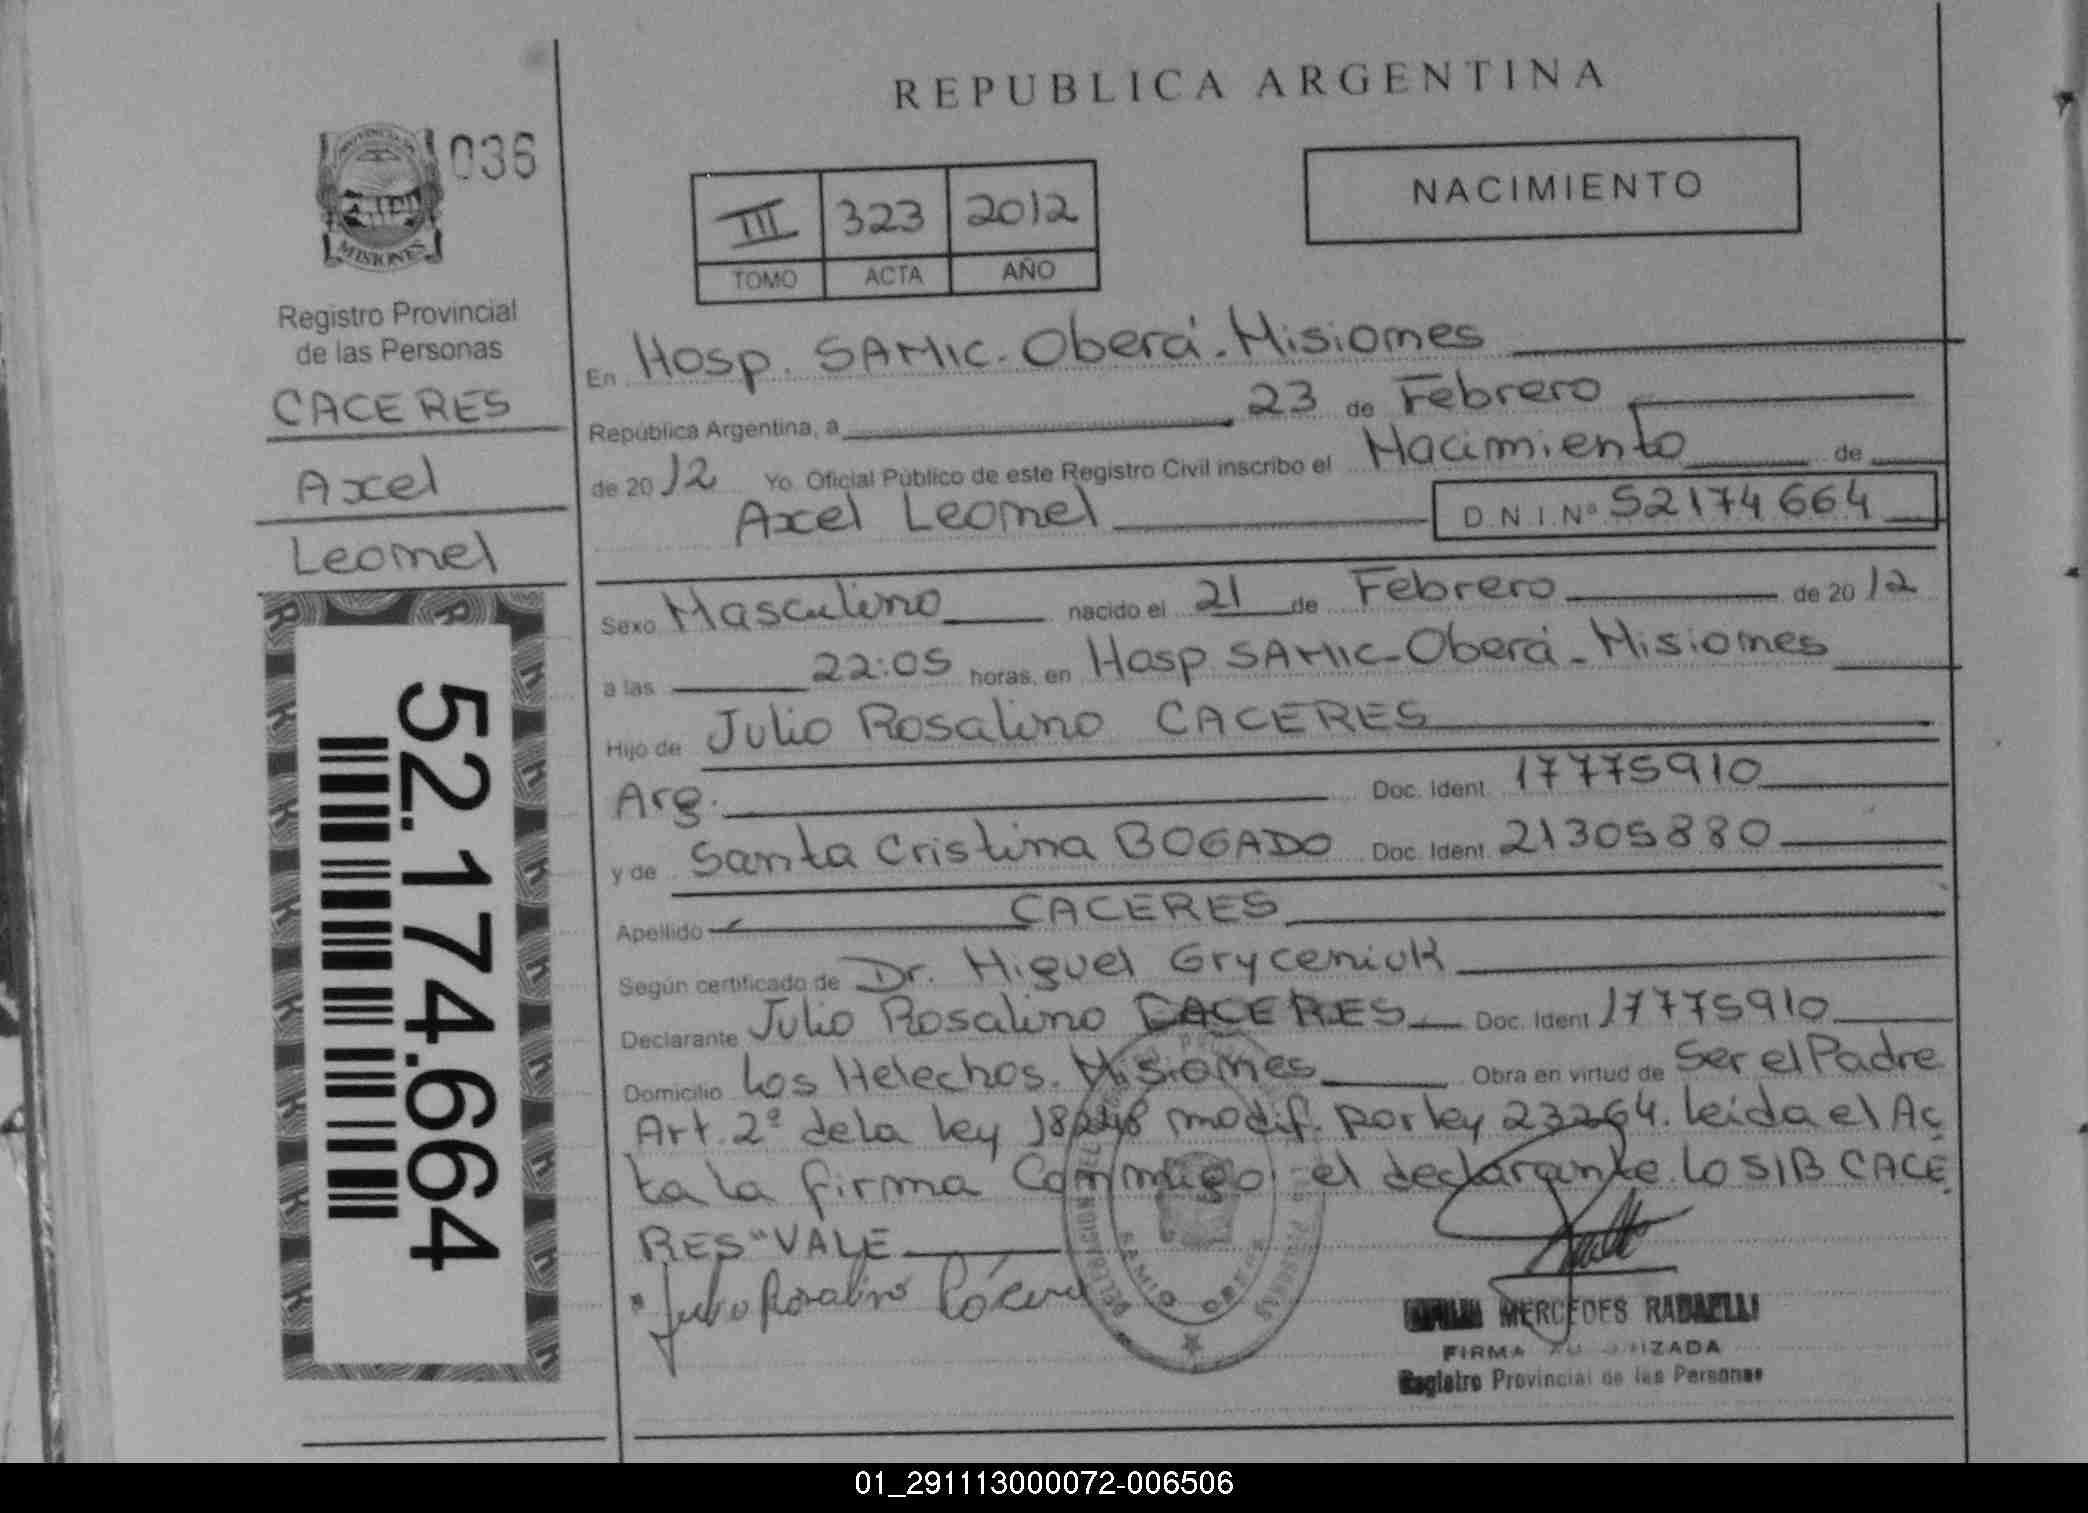 REPUBLICA ARGENTINA
PROVINCIA DE
MISIONES
036
Registro Provincial
de las Personas
CACERES
Axel
Leonel
52.174.664
III 323 2012
TOMO ACTA AÑO
NACIMIENTO
En Hosp. SAMIC. Oberá. Misiones
República Argentina, a 23 de Febrero
de 2012 Yo Oficial Público de este Registro Civil inscribo el Nacimiento de
Axel Leonel D.N.I.Nº 52174664
Sexo Masculino nacido el 21 de Febrero de 2012
a las 22:05 horas, en Hosp SAMIC-Oberá-Misiones
Hijo de Julio Rosalino CACERES
Arg. Doc. Ident. 17775910
y de Santa Cristina BOGADO Doc. Ident. 21305880
Apellido CACERES
Según certificado de Dr. Miguel Gryceniuk
Declarante Julio Rosalino CACERES Doc. Ident 17775910
Domicilio Los Helechos. Misiones Obra en virtud de Ser el Padre
Art. 2º de la ley 18248 modif. por ley 23264. Leida el Ac
ta la firma Conmigo el declarante. Lo S/B CACE
RES" VALE
Julio Rosalino Cáceres
DELEGACION
SAMIC OBERA
MERCEDES RADAELLI
FIRMA AUTORIZADA
Registro Provincial de las Personas
01_291113000072-006506